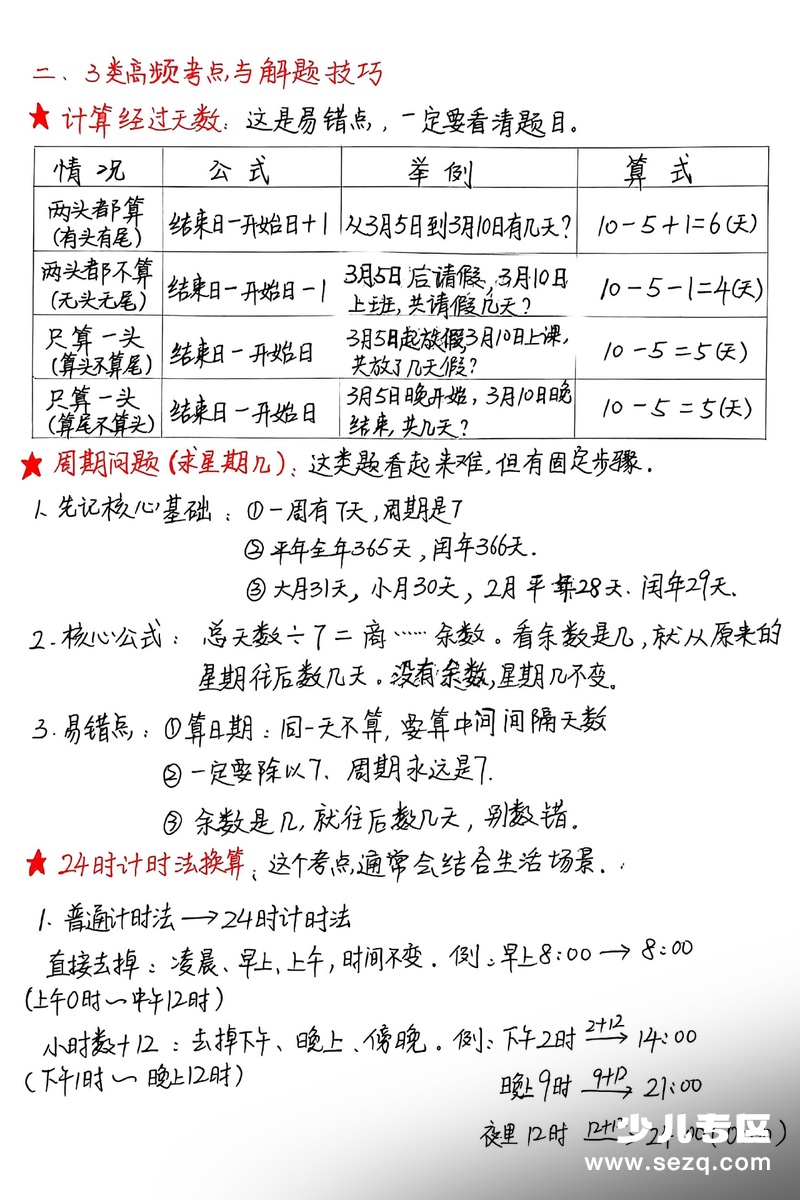 二、3类高频考点与解题技巧
★ 计算经过天数：这是易错点，一定要看清题目。
情况 公式 举例 算式
两头都算(有头有尾) 结束日-开始日+1 从3月5日到3月10日有几天? 10-5+1=6(天)
两头都不算(无头无尾) 结束日-开始日-1 3月5日后请假，3月10日上班，共请假几天? 10-5-1=4(天)
只算一头(算头不算尾) 结束日-开始日 3月5日起放假3月10日上课，共放了几天假? 10-5=5(天)
只算一头(算尾不算头) 结束日-开始日 3月5日晚开始，3月10日晚结束，共几天? 10-5=5(天)
★ 周期问题(求星期几)：这类题看起来难，但有固定步骤.
1、先记核心基础：①一周有7天，周期是7
②平年全年365天，闰年366天.
③大月31天，小月30天，2月平年28天.闰年29天.
2.核心公式：总天数÷7=商……余数。看余数是几，就从原来的
星期往后数几天。没有余数，星期几不变。
3.易错点：①算日期：同一天不算，要算中间间隔天数
②一定要除以7、周期永远是7.
③余数是几，就往后数几天，别数错.
★ 24时计时法换算：这个考点，通常会结合生活场景.
1.普通计时法→24时计时法
直接去掉：凌晨、早上、上午，时间不变.例：早上8:00→8:00
(上午0时～中午12时)
小时数+12：去掉下午、晚上、傍晚。例：下午2时 2+12→ 14:00
(下午1时～晚上12时)
晚上9时 9+12→ 21:00
夜里12时 12+12→ 24:00
少儿考区
www.sezq.com